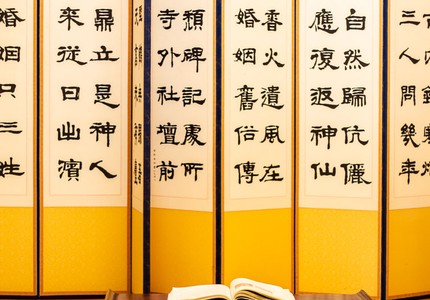 三人問幾年
自然歸伉儷
應復返神仙
香火遺風在
婚姻舊俗傳
頹碑記處所
寺外社壇前
鼎立是神人
來從日出濱
婚姻只三姓